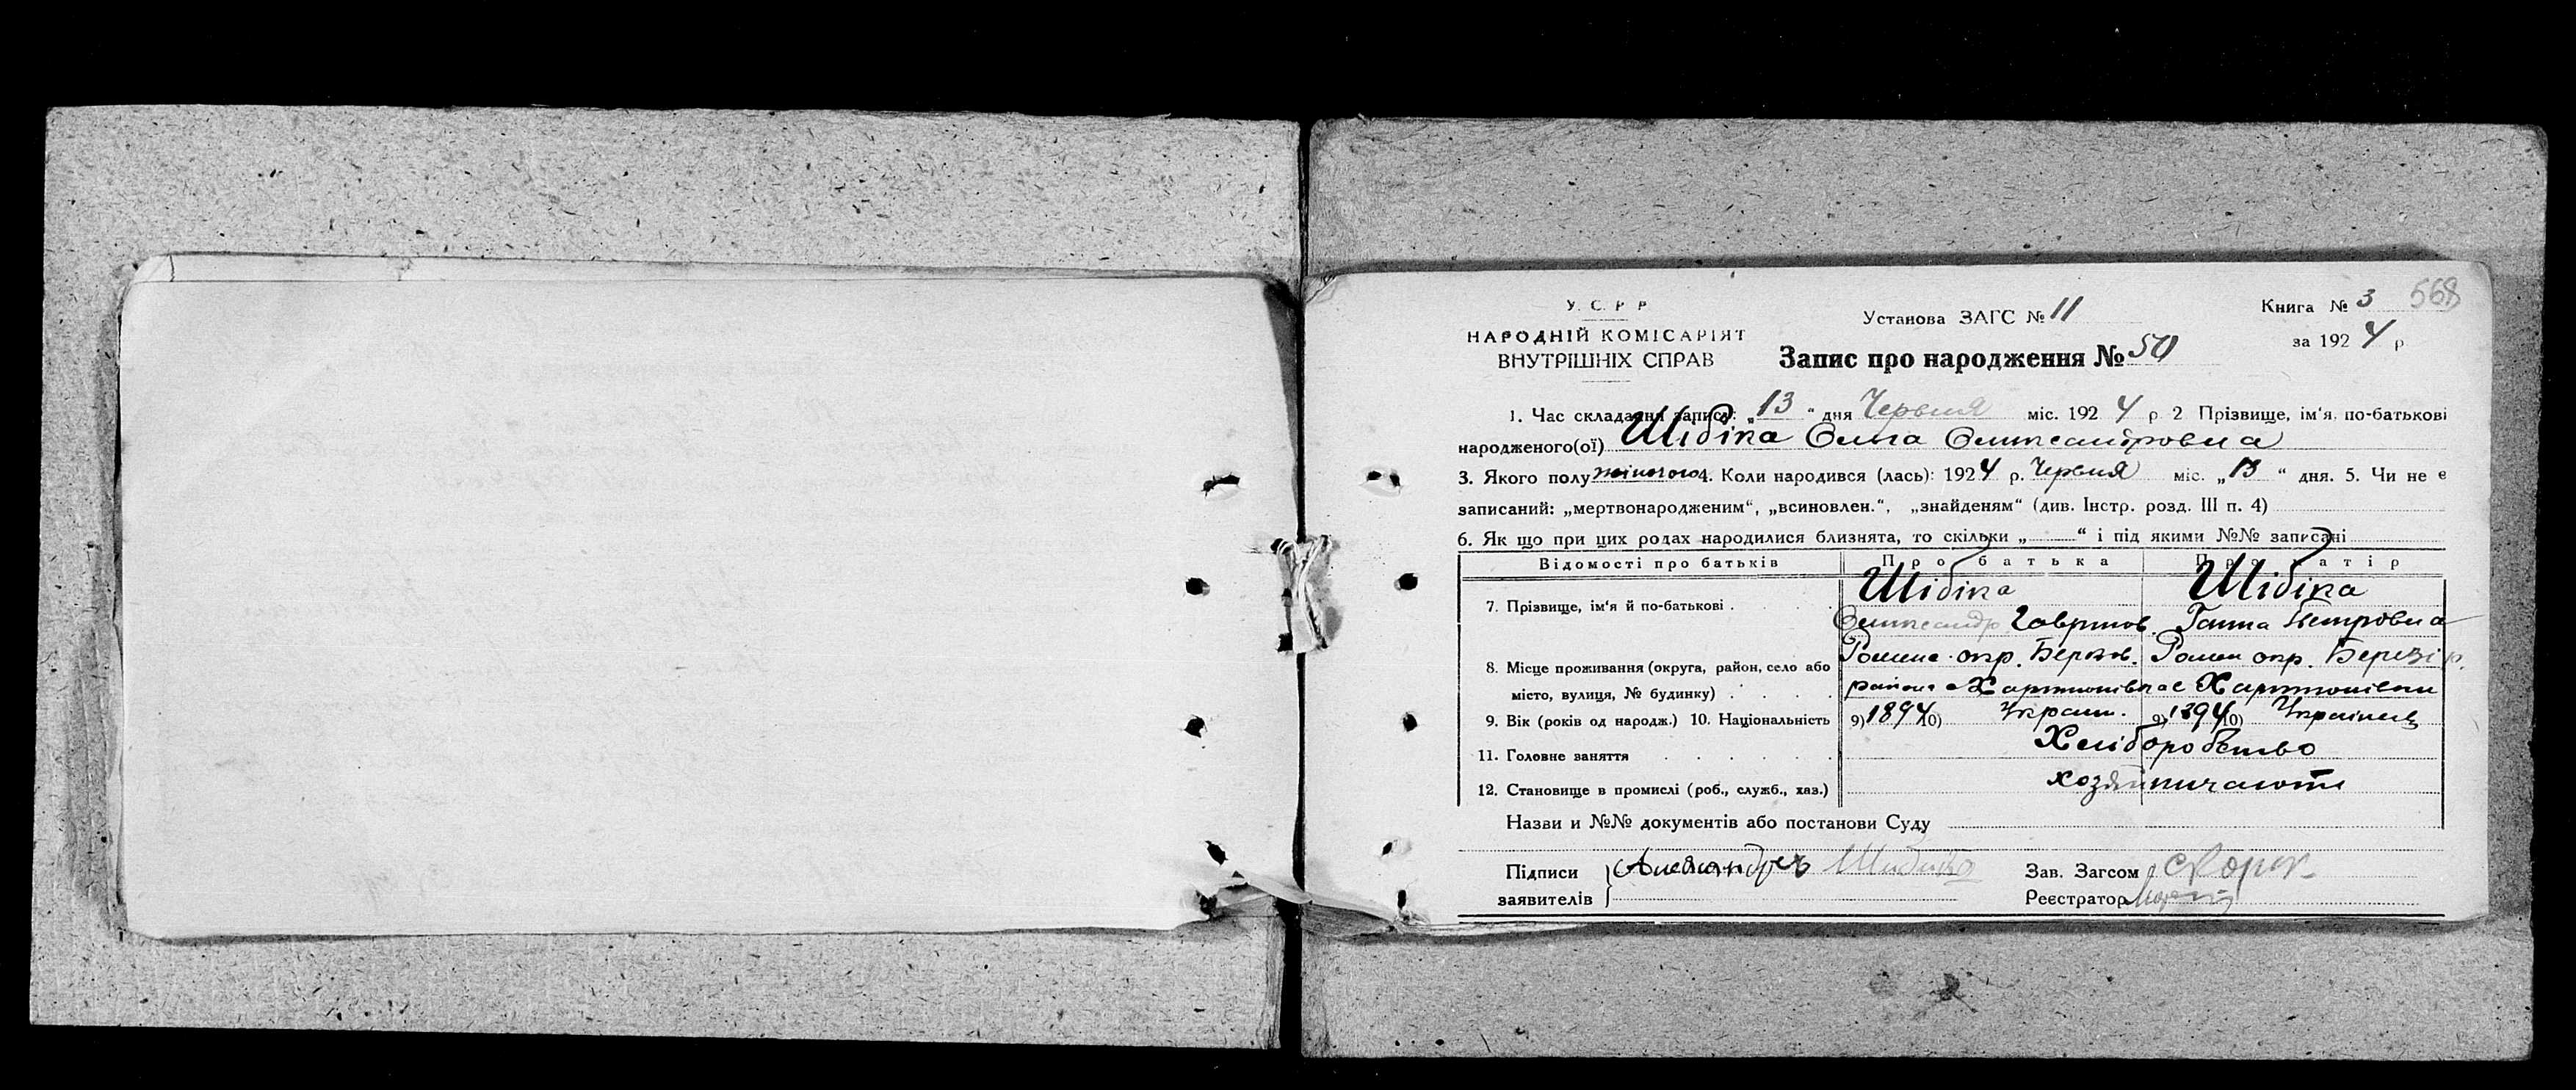 У. С. Р Р
НАРОДНІЙ КОМІСАРІЯТ
ВНУТРІШНІХ СПРАВ
Установа ЗАГС № 11
Запис про народження № 50
Книга № 3 568
за 1924 р
1. Час складання запису: „13“ дня Червня міс. 1924 р 2 Прізвище, ім‘я, по-батькові
народженого(ої) Шібіка Олександровна
3. Якого полу жіночого 4. Коли народився (лась): 1924 р. Червня міс. „13“ дня. 5. Чи не є
записаний: „мертвонародженим“, „всиновлен.“, „знайденям“ (див. Інстр. розд. III п. 4)
6. Як що при цих родах народилися близнята, то скільки „ “ і під якими №№ записані
Відомості про батьків Про батька Про матір
7. Прізвище, ім‘я й по-батькові . Шібіка Шібіка
Олександр Гаврилов. Ганна Петровна
8. Місце проживання (округа, район, село або Роменс. окр. Ромен окр.
місто, вулиця, № будинку) . района
9. Вік (років од народж.) 10. Національність 9) 1894 10) Україн. 9) 1894 10)
11. Головне заняття Хліборобство
12. Становище в промислі (роб., служб., хаз.)
Назви и №№ документів або постанови Суду
Підписи Александръ
Зав. Загсом
заявителів
Реєстратор